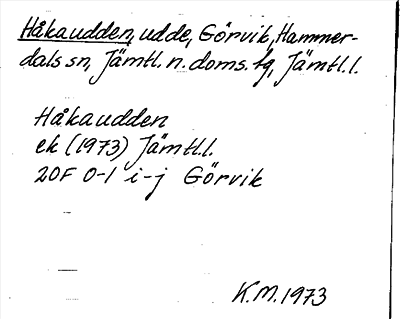 Håkaudden, udde, Görvik, Hammer-
dals sn, Jämtl. n. doms. fg, Jämtl. l.
Håkaudden
ek (1973) Jämtl. l.
20F 0-1 i-j Görvik
K.M. 1973